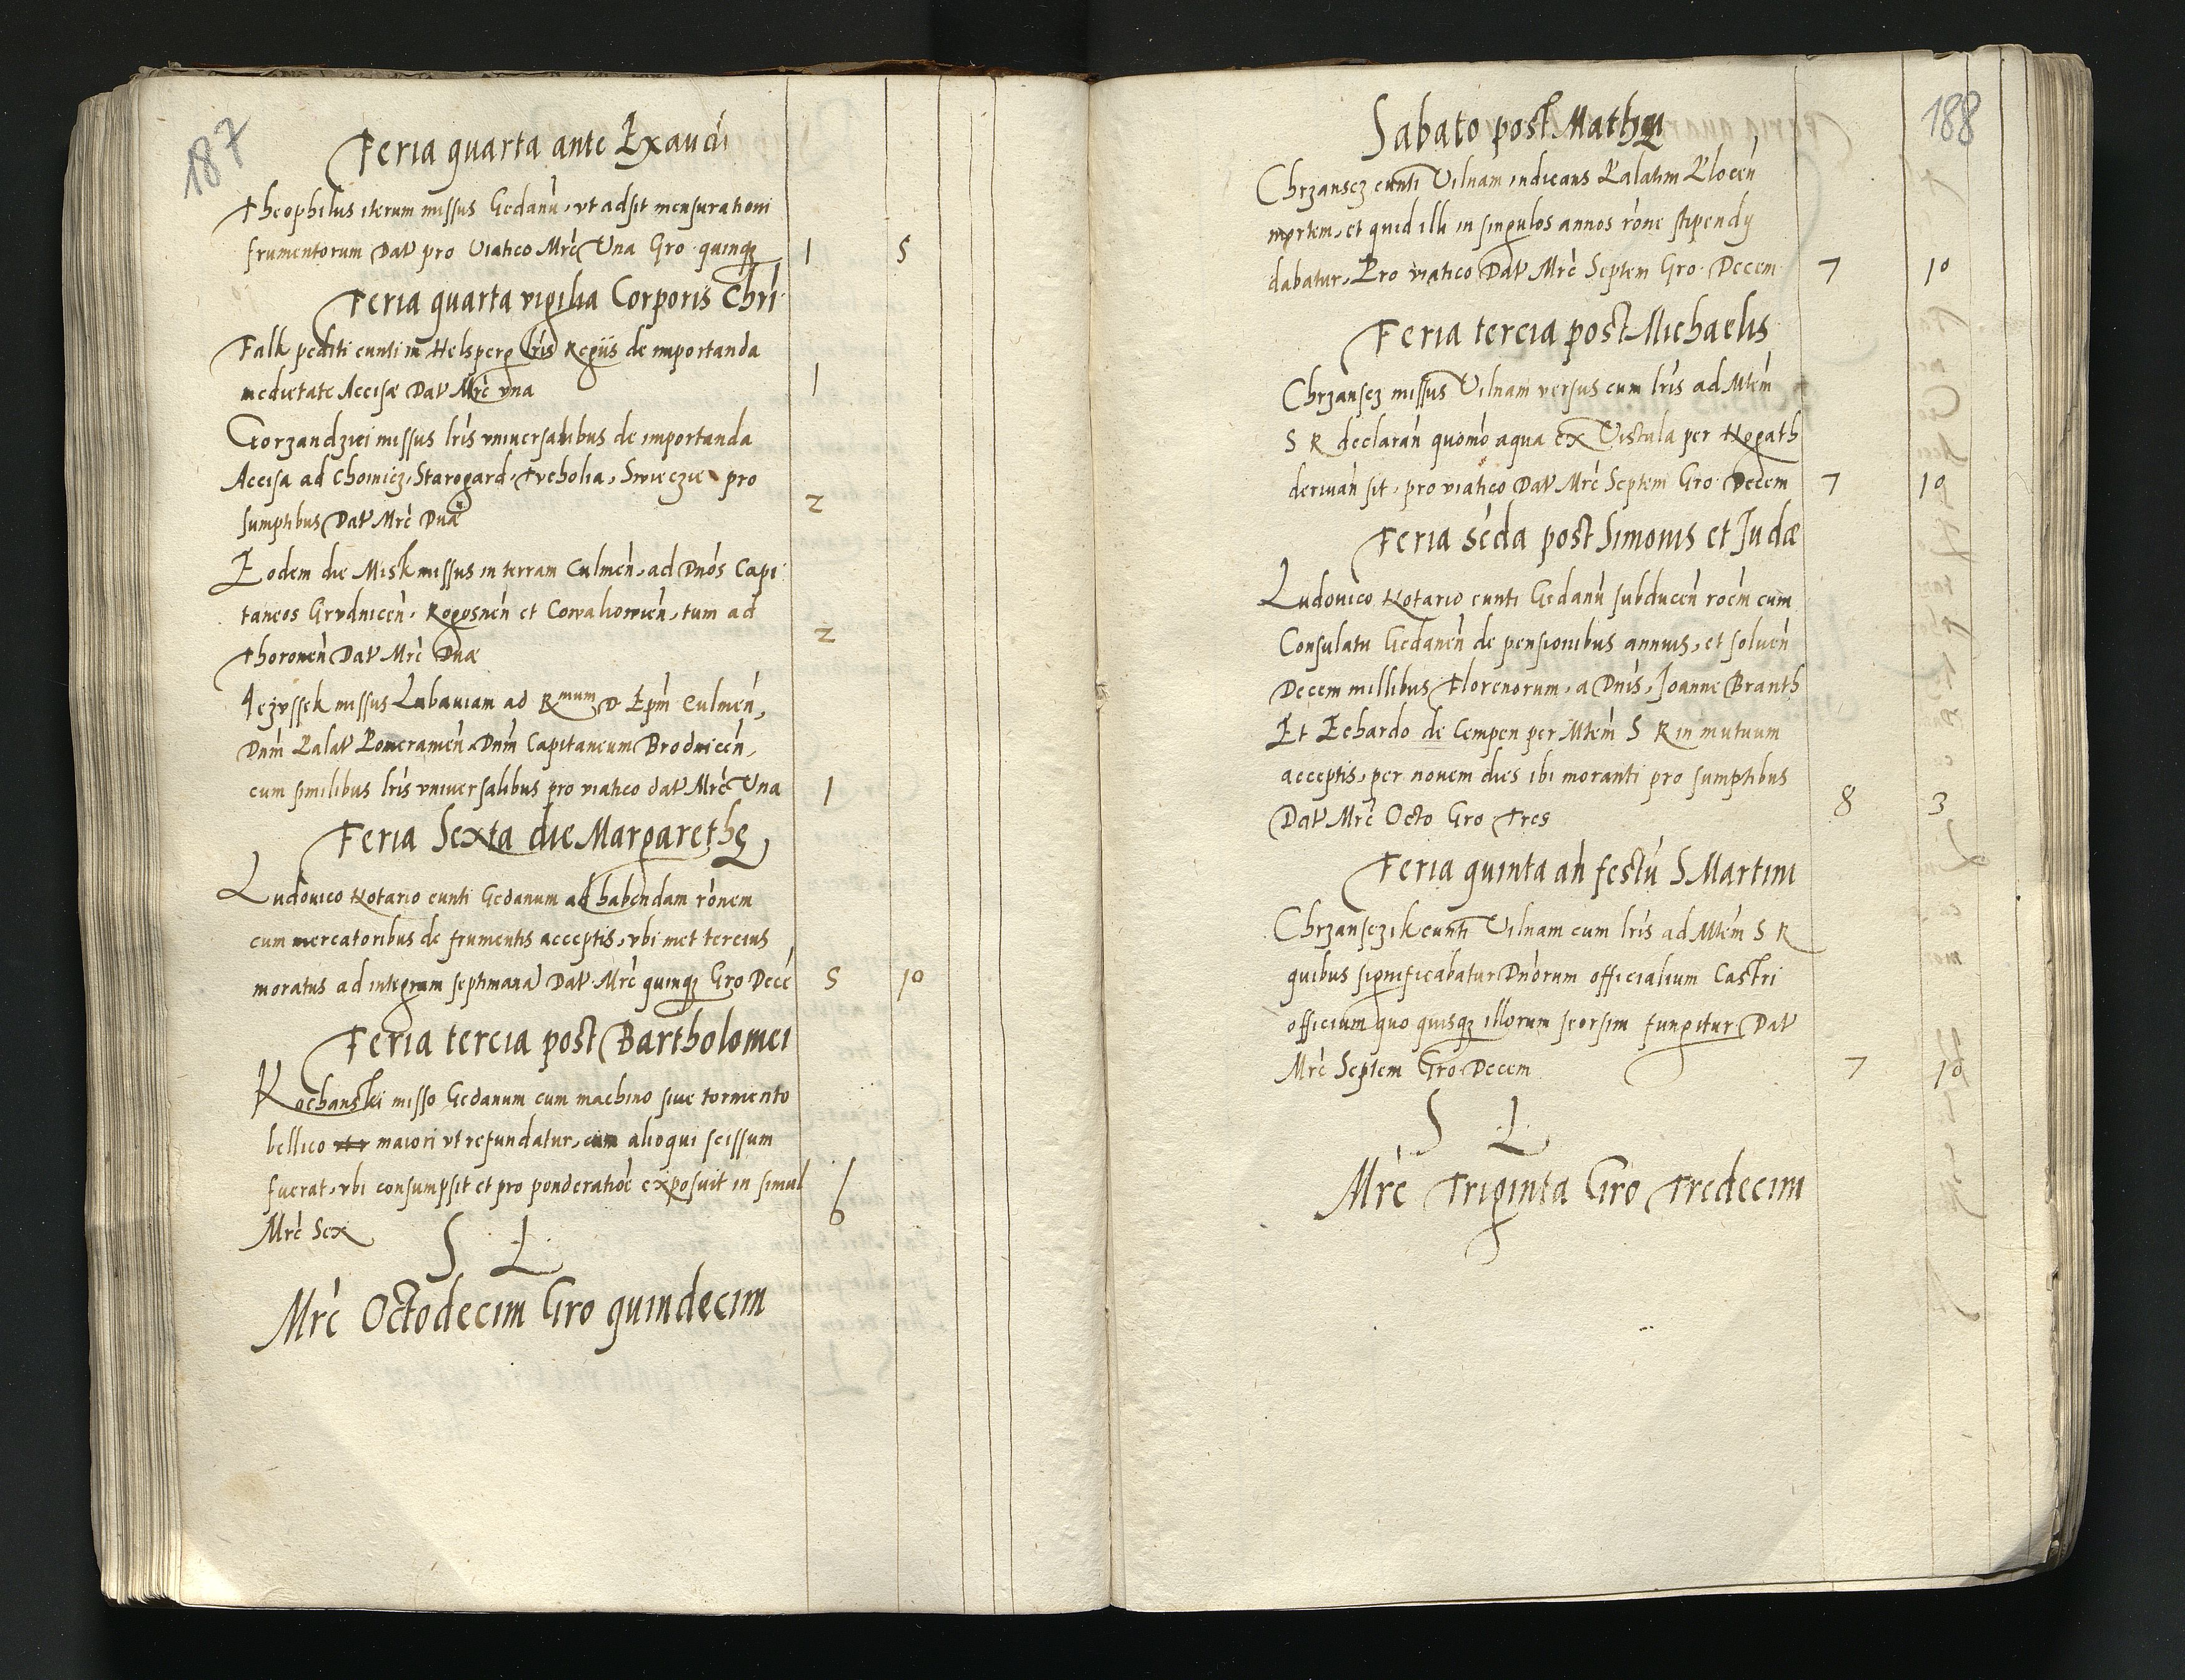 187
Feria quarta ante Exaudi
Theophilus iterum missus Gedanu, vt adsit mensurationi
frumentorum Dat pro Viatico Mrc Una Gro quinq 1 5
Feria quarta vigilia Corporis Chri
Falk pediti eunti in Helsperg lris Regiis de importanda
medietate Accisæ Dat Mrc vna 1
missus lris vniuersalibus de importanda
Accisa ad Choinicz, Starogard, Tvcholia, Swieczie pro
sumptibus Dat Mrc Duæ 2
Eodem die Misk missus in terram Culmen, ad Dnos Capi
taneos Grvdnicen, Rogosnen et Cowaliowien, tum ad
Thoronen Dat Mrc Duæ 2
missus Lubauiam ad Rmum D Epm Culmen,
Dnm Palat Pomeranien, Dnm Capitaneum Brodnicen,
cum similibus lris vniuersalibus pro viatico dat Mrc Una 1
Feria Sexta die Margarethę
Ludouico Notario eunti Gedanum ad habendam ronem
cum mercatoribus de frumentis acceptis, vbi met tercius
moratus ad integram septimana Dat Mrc quinq Gro Dece 5 10
Feria tercia post Bartholomei
Kochanski misso Gedanum cum machino siue tormento
bellico maiori vt refundatur, cum alioqui scissum
fuerat, vbi consumpsit et pro ponderatioe exposuit in simul
Mrc Sex 6
S L
Mrc Octodecim Gro quindecim
188
Sabato post Mathęi
Chrzanscz eunti Vilnam indicans Palatini Plocen
mortem, et quid illi in singulos annos rone stipendij
dabatur, Pro viatico Dat Mrc Septem Gro Decem 7 10
Feria tercia post Michaelis
Chrzanscz missus Vilnam versus cum lris ad Mtem
S R declaran quomo aqua ex Vistula per Nogath
deriuan sit, pro viatico Dat Mrc Septem Gro Decem 7 10
Feria secda post Simonis et Judæ
Ludouico Notario eunti Gedanu subducen roem cum
Consulatu Gedanen de pensionibus annuis, et soluen
Decem millibus Florenorum, a Dnis, Joanne Branth
Et Echardo de Cempen per Mtem S R in mutuum
acceptis, per nouem dies ibi moranti pro sumptibus
Dat Mrc Octo Gro Tres 8 3
Feria quinta an festu S Martini
Chrzansczik eunti Vilnam cum lris ad Mtem S R
quibus significabatur Dnorum officialium Castri
officium quo quisq illorum seorsim fungitur Dat
Mrc Septem Gro Decem 7 10
S L
Mrc Triginta Gro Tredecim